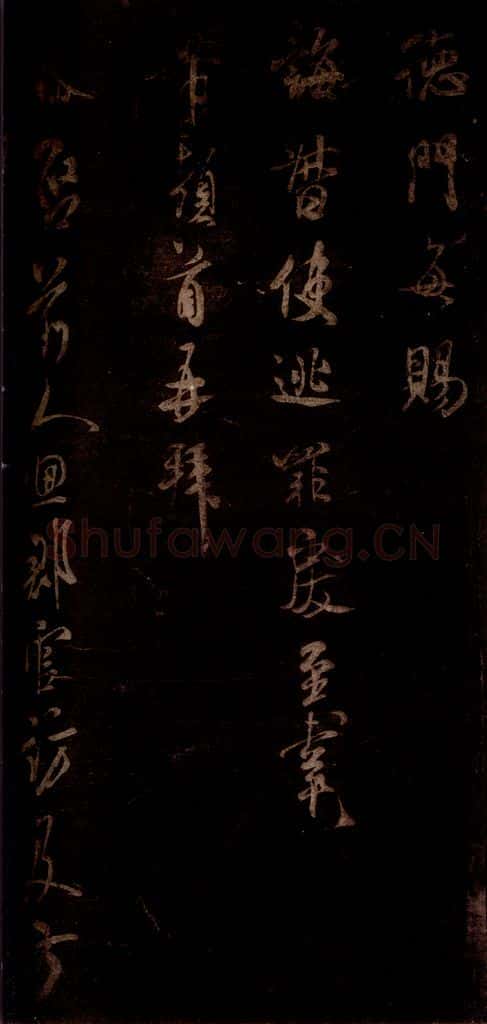 德門每賜
誨督使逃罪戾至
芾頓首再拜
啓前人回郡官訪及
Shufawang.CN